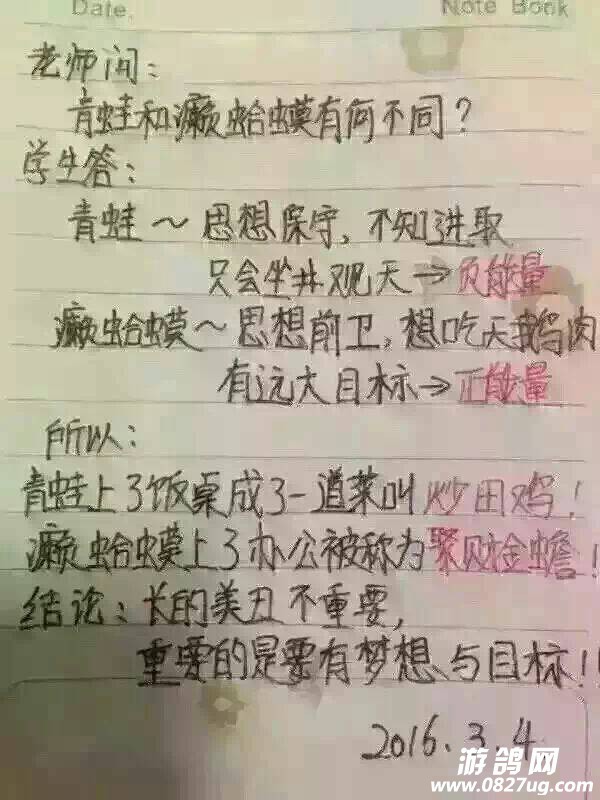 Date.
Note Book
老师问：
青蛙和癞蛤蟆有何不同？
学生答：
青蛙～思想保守，不知进取
只会坐井观天→负能量
癞蛤蟆～思想前卫，想吃天鹅肉
有远大目标→正能量
所以：
青蛙上了饭桌成了一道菜叫炒田鸡！
癞蛤蟆上了办公被称为聚财金蟾！
结论：长的美丑不重要，
重要的是要有梦想与目标！！
2016.3.4
游鸽网
www.0827ug.com